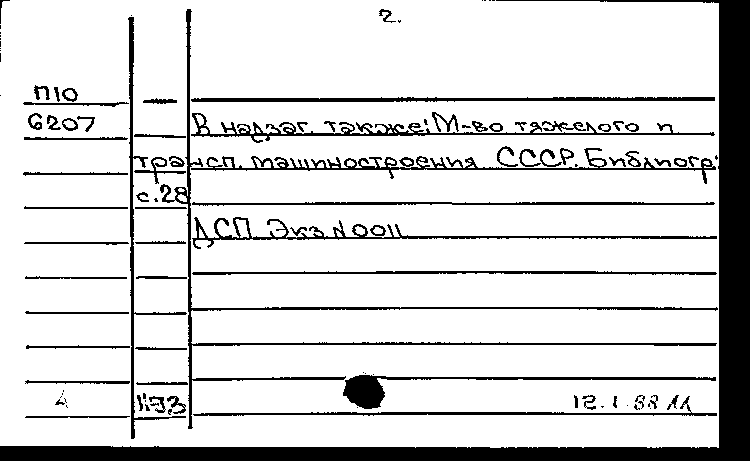 2.
П10
6207
В надзаг. также: М-во тяжелого и
трансп. машиностроения СССР. Библиогр:
с.28
ДСП Экз N 0011
12.1.88